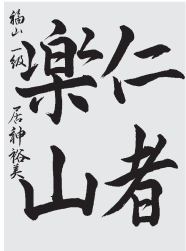 仁者
楽山
福山 一級 居神裕美